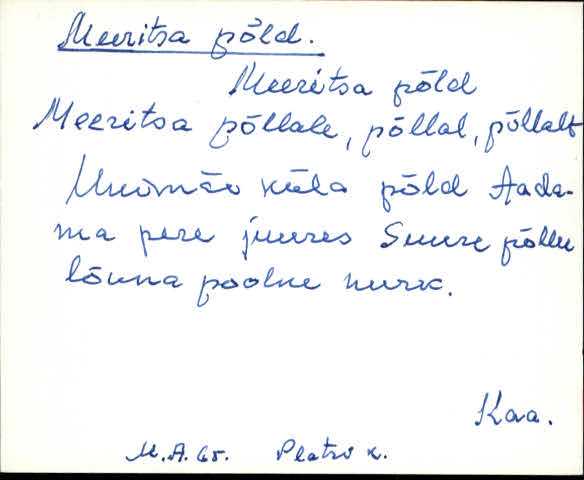 Meeritsa põld.
Meeritsa põld
Meeritsa põllale, põllal, põllalt
küla põld Aada-
ma pere juures Suure põllu
lõuna poolne nurk.
Kaa.
M.A. 65. Platso k.